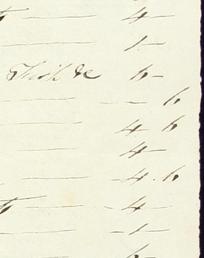 — 4 —
— 1 —
&c 6 —
— — 6
— 4 6
— 4 —
— 4 . 6
— 4 —
— 1 —
6 —